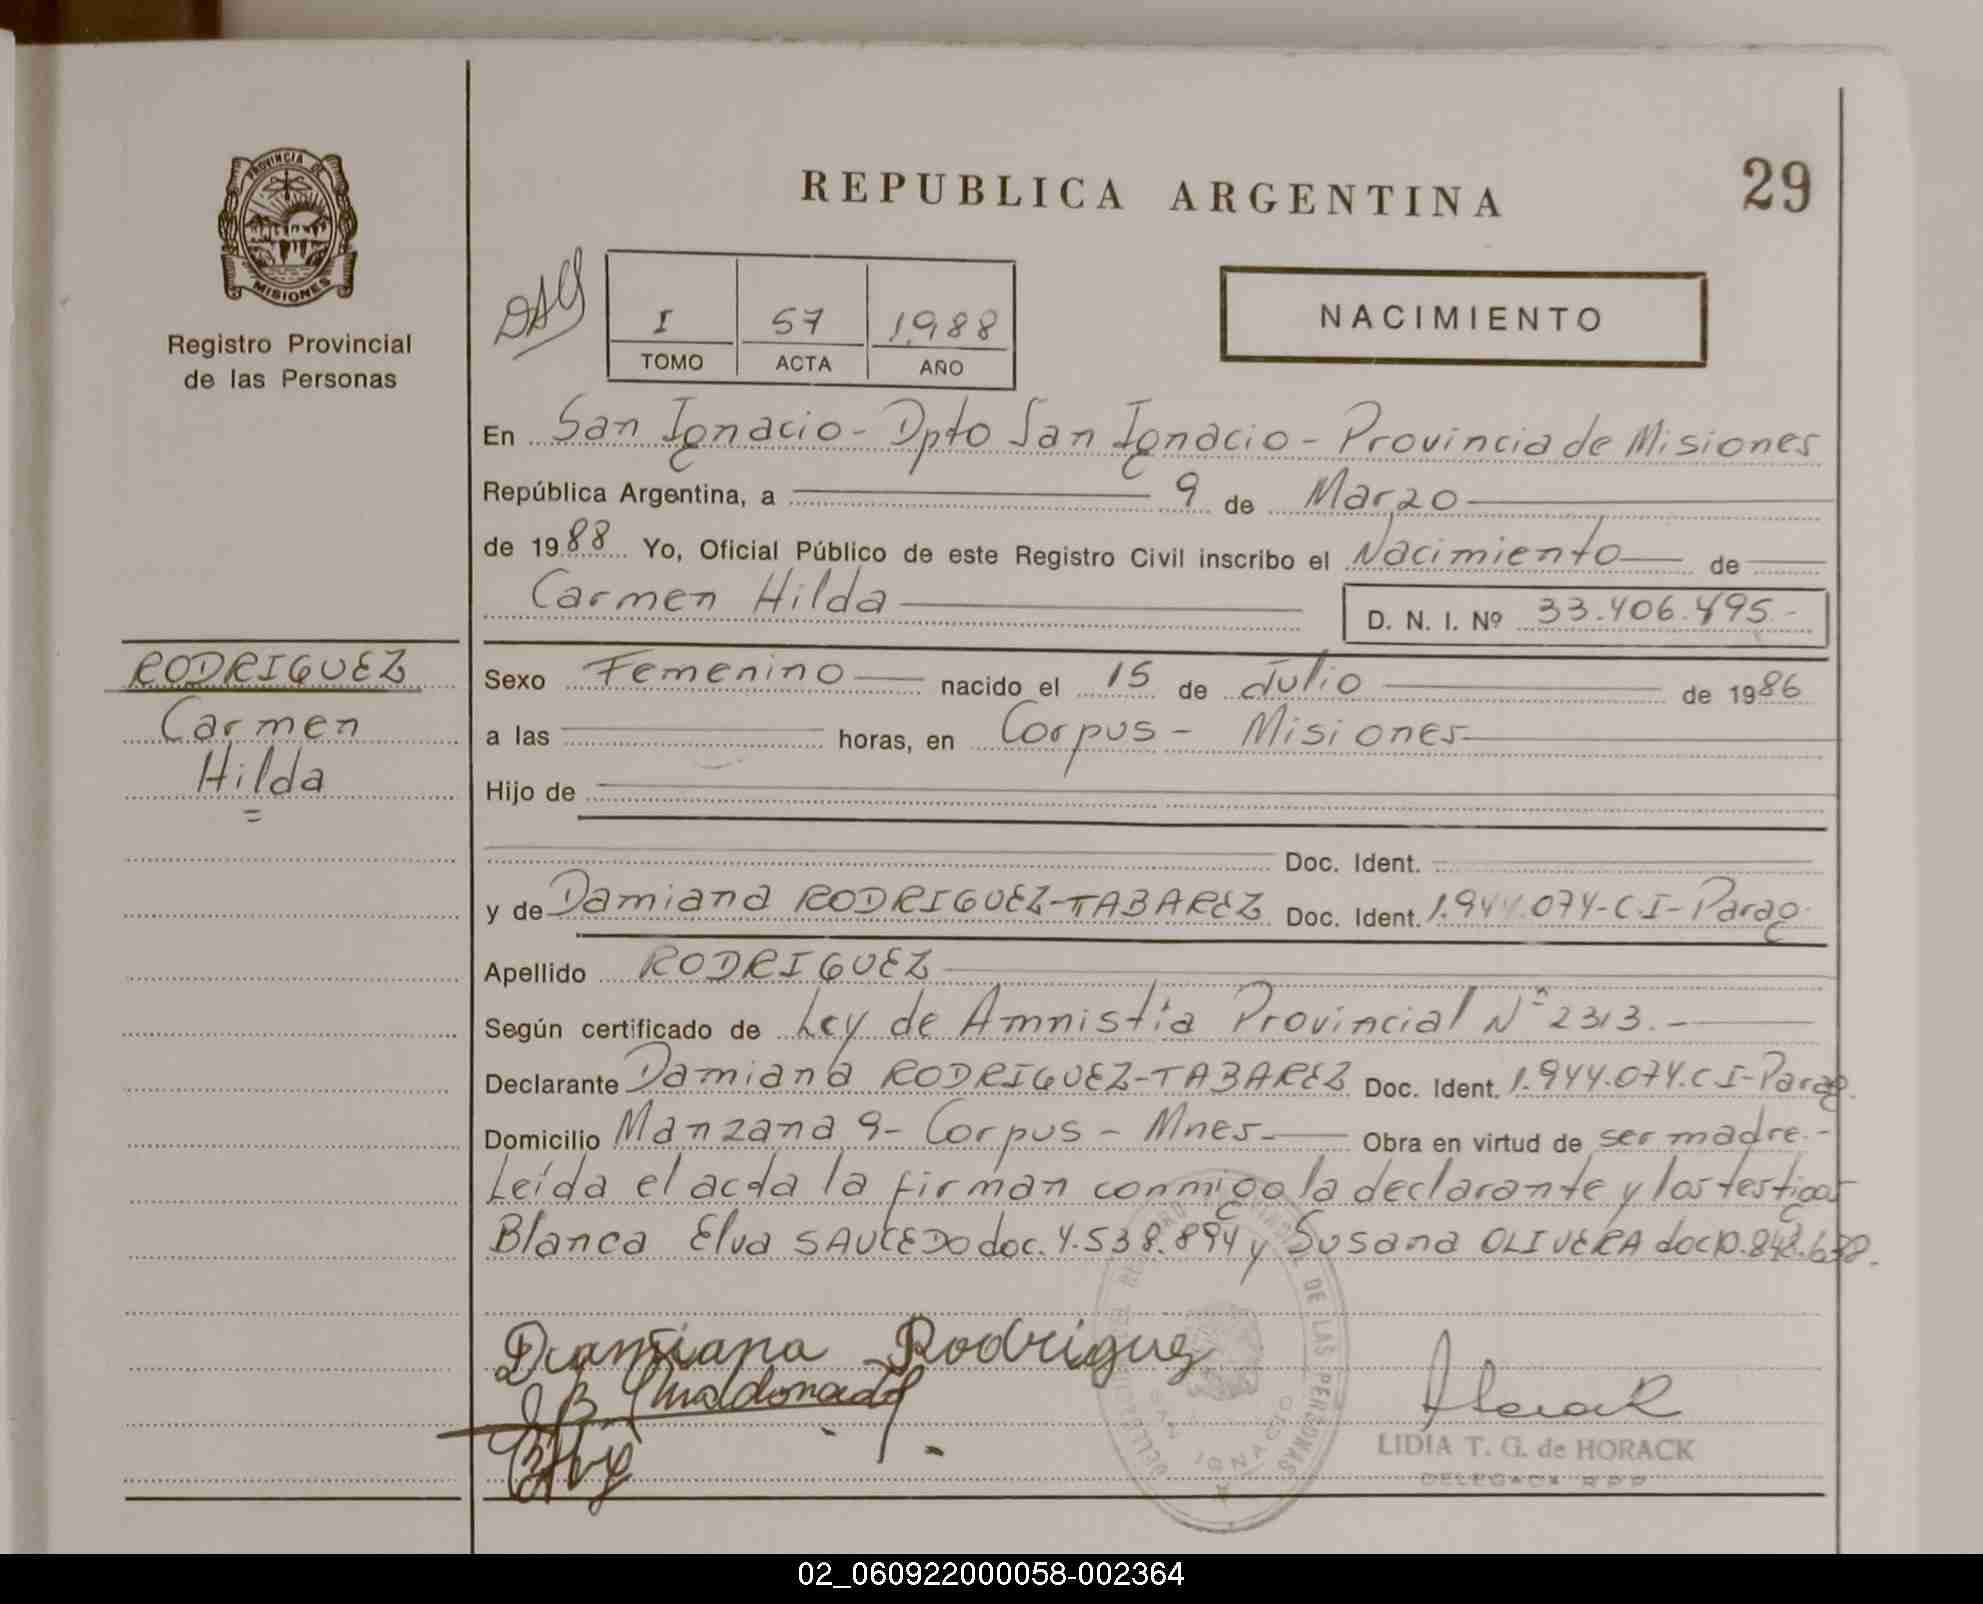 REPUBLICA ARGENTINA
29
PROVINCIA DE
MISIONES
Registro Provincial
de las Personas
I 57 1988
TOMO ACTA AÑO
NACIMIENTO
En San Ignacio - Dpto San Ignacio - Provincia de Misiones
República Argentina, a 9 de Marzo
de 1988 Yo, Oficial Público de este Registro Civil inscribo el Nacimiento de
Carmen Hilda D. N. I. Nº 33.406.495.-
RODRIGUEZ
Carmen
Hilda
=
Sexo Femenino nacido el 15 de Julio de 1986
a las horas, en Corpus - Misiones
Hijo de
Doc. Ident.
y de Damiana RODRIGUEZ-TABAREZ Doc. Ident. 1.944.074-C.I-Parag.
Apellido RODRIGUEZ
Según certificado de Ley de Amnistia Provincial Nº 2313.-
Declarante Damiana RODRIGUEZ-TABAREZ Doc. Ident. 1.944.074.CI-Parag.
Domicilio Manzana 9- Corpus - Mnes- Obra en virtud de ser madre.-
Leída el acta la firman conmigo la declarante y los testigos
Blanca Elva SAUCEDO doc. 4.538.894 y Susana OLIVERA doc 10.848.638.
Damiana Rodriguez
Maldonado
Horack
LIDIA T. G. de HORACK
DELEGADA RPP
DE LAS PERSONAS
SAN IGNACIO
02_060922000058-002364